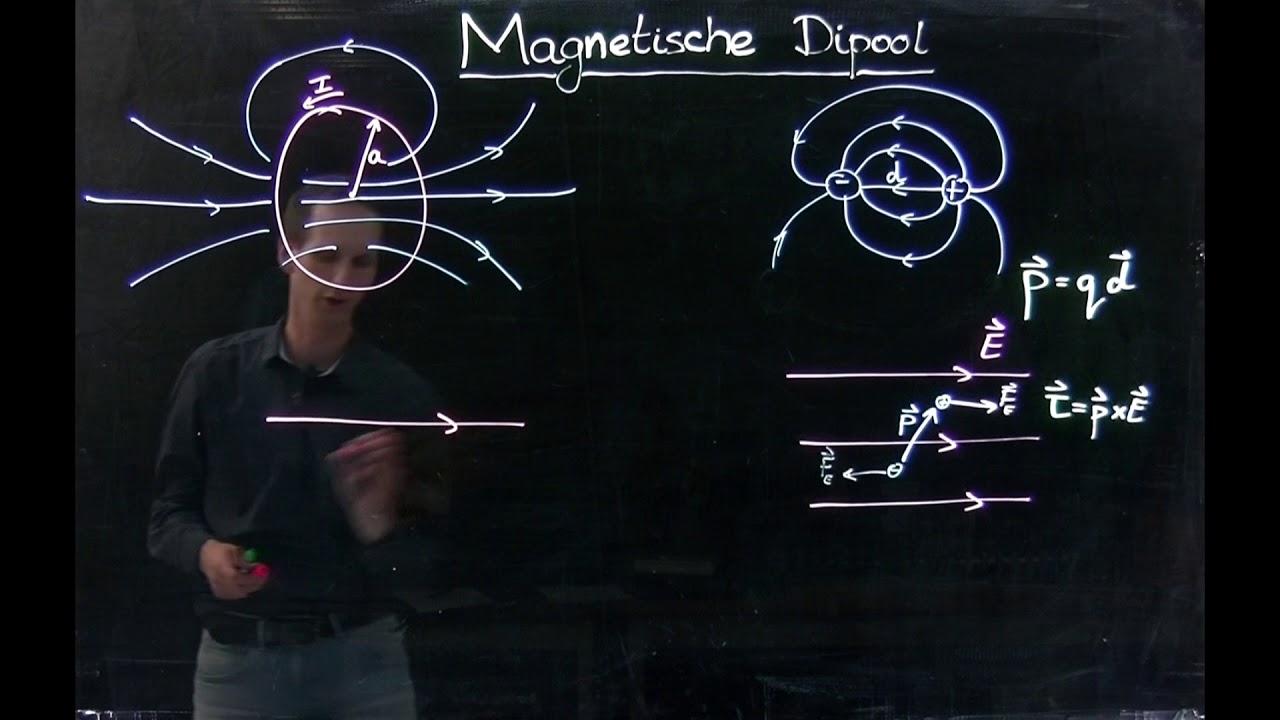 Magnetische Dipool
I
a
- d +
p⃗ = q d⃗
E⃗
p⃗ + F⃗E
τ⃗ = p⃗ × E⃗
F⃗E -